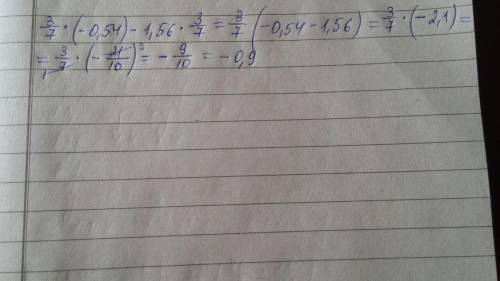 3/7 · (-0,54) - 1,56 · 3/7 = 3/7 (-0,54 - 1,56) = 3/7 · (-2,1) =
= 3/7 · (-21/10)³ = -9/10 = -0,9